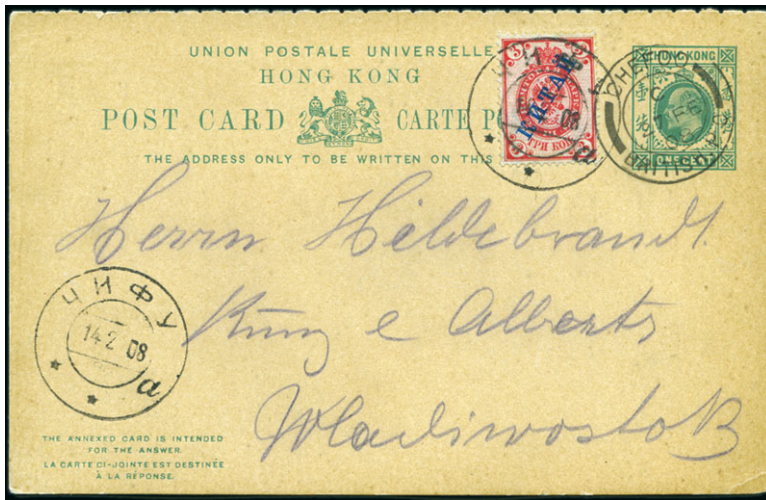 UNION POSTALE UNIVERSELLE
HONG KONG
POST CARD CARTE PO
THE ADDRESS ONLY TO BE WRITTEN ON THIS
3 3
КИТАЙ
ТРИ КОП
08
а
CHEFOO
BRITISH
HONG KONG
ONE CENT
Herrn Hildebrandt
Kunz & Alberts
Wladiwostok
ЧИФУ
14 2 08
а
THE ANNEXED CARD IS INTENDED
FOR THE ANSWER.
LA CARTE CI-JOINTE EST DESTINÉE
À LA RÉPONSE.